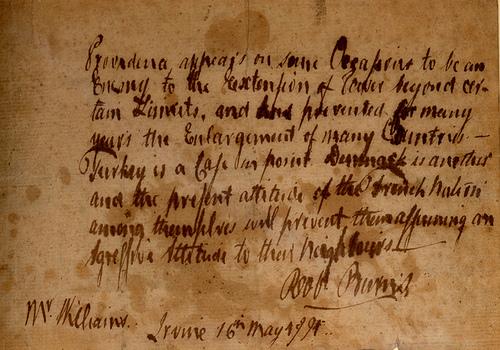 Providence appears on some Occasions to be an
Enemy to the Extension of Power beyond cer-
tain Limits, and has prevented for many
years the Enlargement of many Countries —
Turkey is a Case in point Denmark is another
and the present attitude of the French Nation
among themselves will prevent them assuming an
Agressive Attitude to their Neighbours —
Robt Burns
Mr. Williams
Irvine 16th May